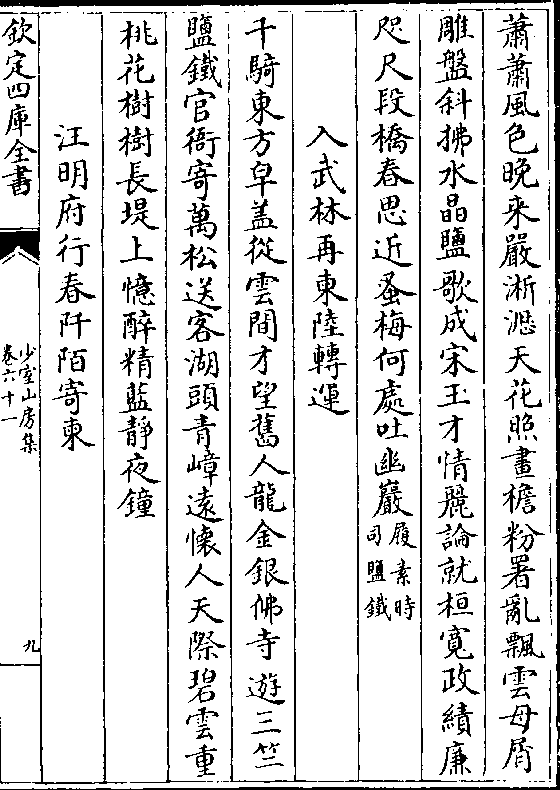 蕭蕭風色晚来嚴淅瀝天花照畫檐粉署亂飄雲母屑
雕盤斜拂水晶鹽歌成宋玉才情麗論就桓寛政績廉
咫尺段橋春思近蚤梅何處吐幽巖履素時司鹽鐵
入武林再柬陸轉運
千騎東方皁盖從雲間才望舊人龍金銀佛寺遊三竺
鹽鐵官衙寄萬松送客湖頭青嶂遠懷人天際碧雲重
桃花樹樹長堤上憶醉精藍靜夜鐘
汪明府行春阡陌寄柬
欽定四庫全書
少室山房集
卷六十一
九